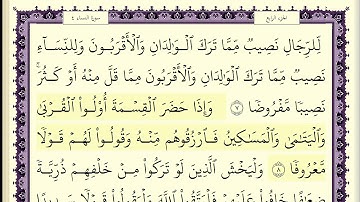 الجزء الرابع
سورة النساء ٤
لِّلرِّجَالِ نَصِيبٌ مِّمَّا تَرَكَ ٱلْوَٰلِدَانِ وَٱلْأَقْرَبُونَ وَلِلنِّسَآءِ
نَصِيبٌ مِّمَّا تَرَكَ ٱلْوَٰلِدَانِ وَٱلْأَقْرَبُونَ مِمَّا قَلَّ مِنْهُ أَوْ كَثُرَۚ
نَصِيبًا مَّفْرُوضًا ٧ وَإِذَا حَضَرَ ٱلْقِسْمَةَ أُو۟لُوا۟ ٱلْقُرْبَىٰ
وَٱلْيَتَٰمَىٰ وَٱلْمَسَٰكِينُ فَٱرْزُقُوهُم مِّنْهُ وَقُولُوا۟ لَهُمْ قَوْلًا
مَّعْرُوفًا ٨ وَلْيَخْشَ ٱلَّذِينَ لَوْ تَرَكُوا۟ مِنْ خَلْفِهِمْ ذُرِّيَّةً
ضِعَٰفًا خَافُوا۟ عَلَيْهِمْ فَلْيَتَّقُوا۟ ٱللَّهَ وَلْيَقُولُوا۟ قَوْلًا سَدِيدًا